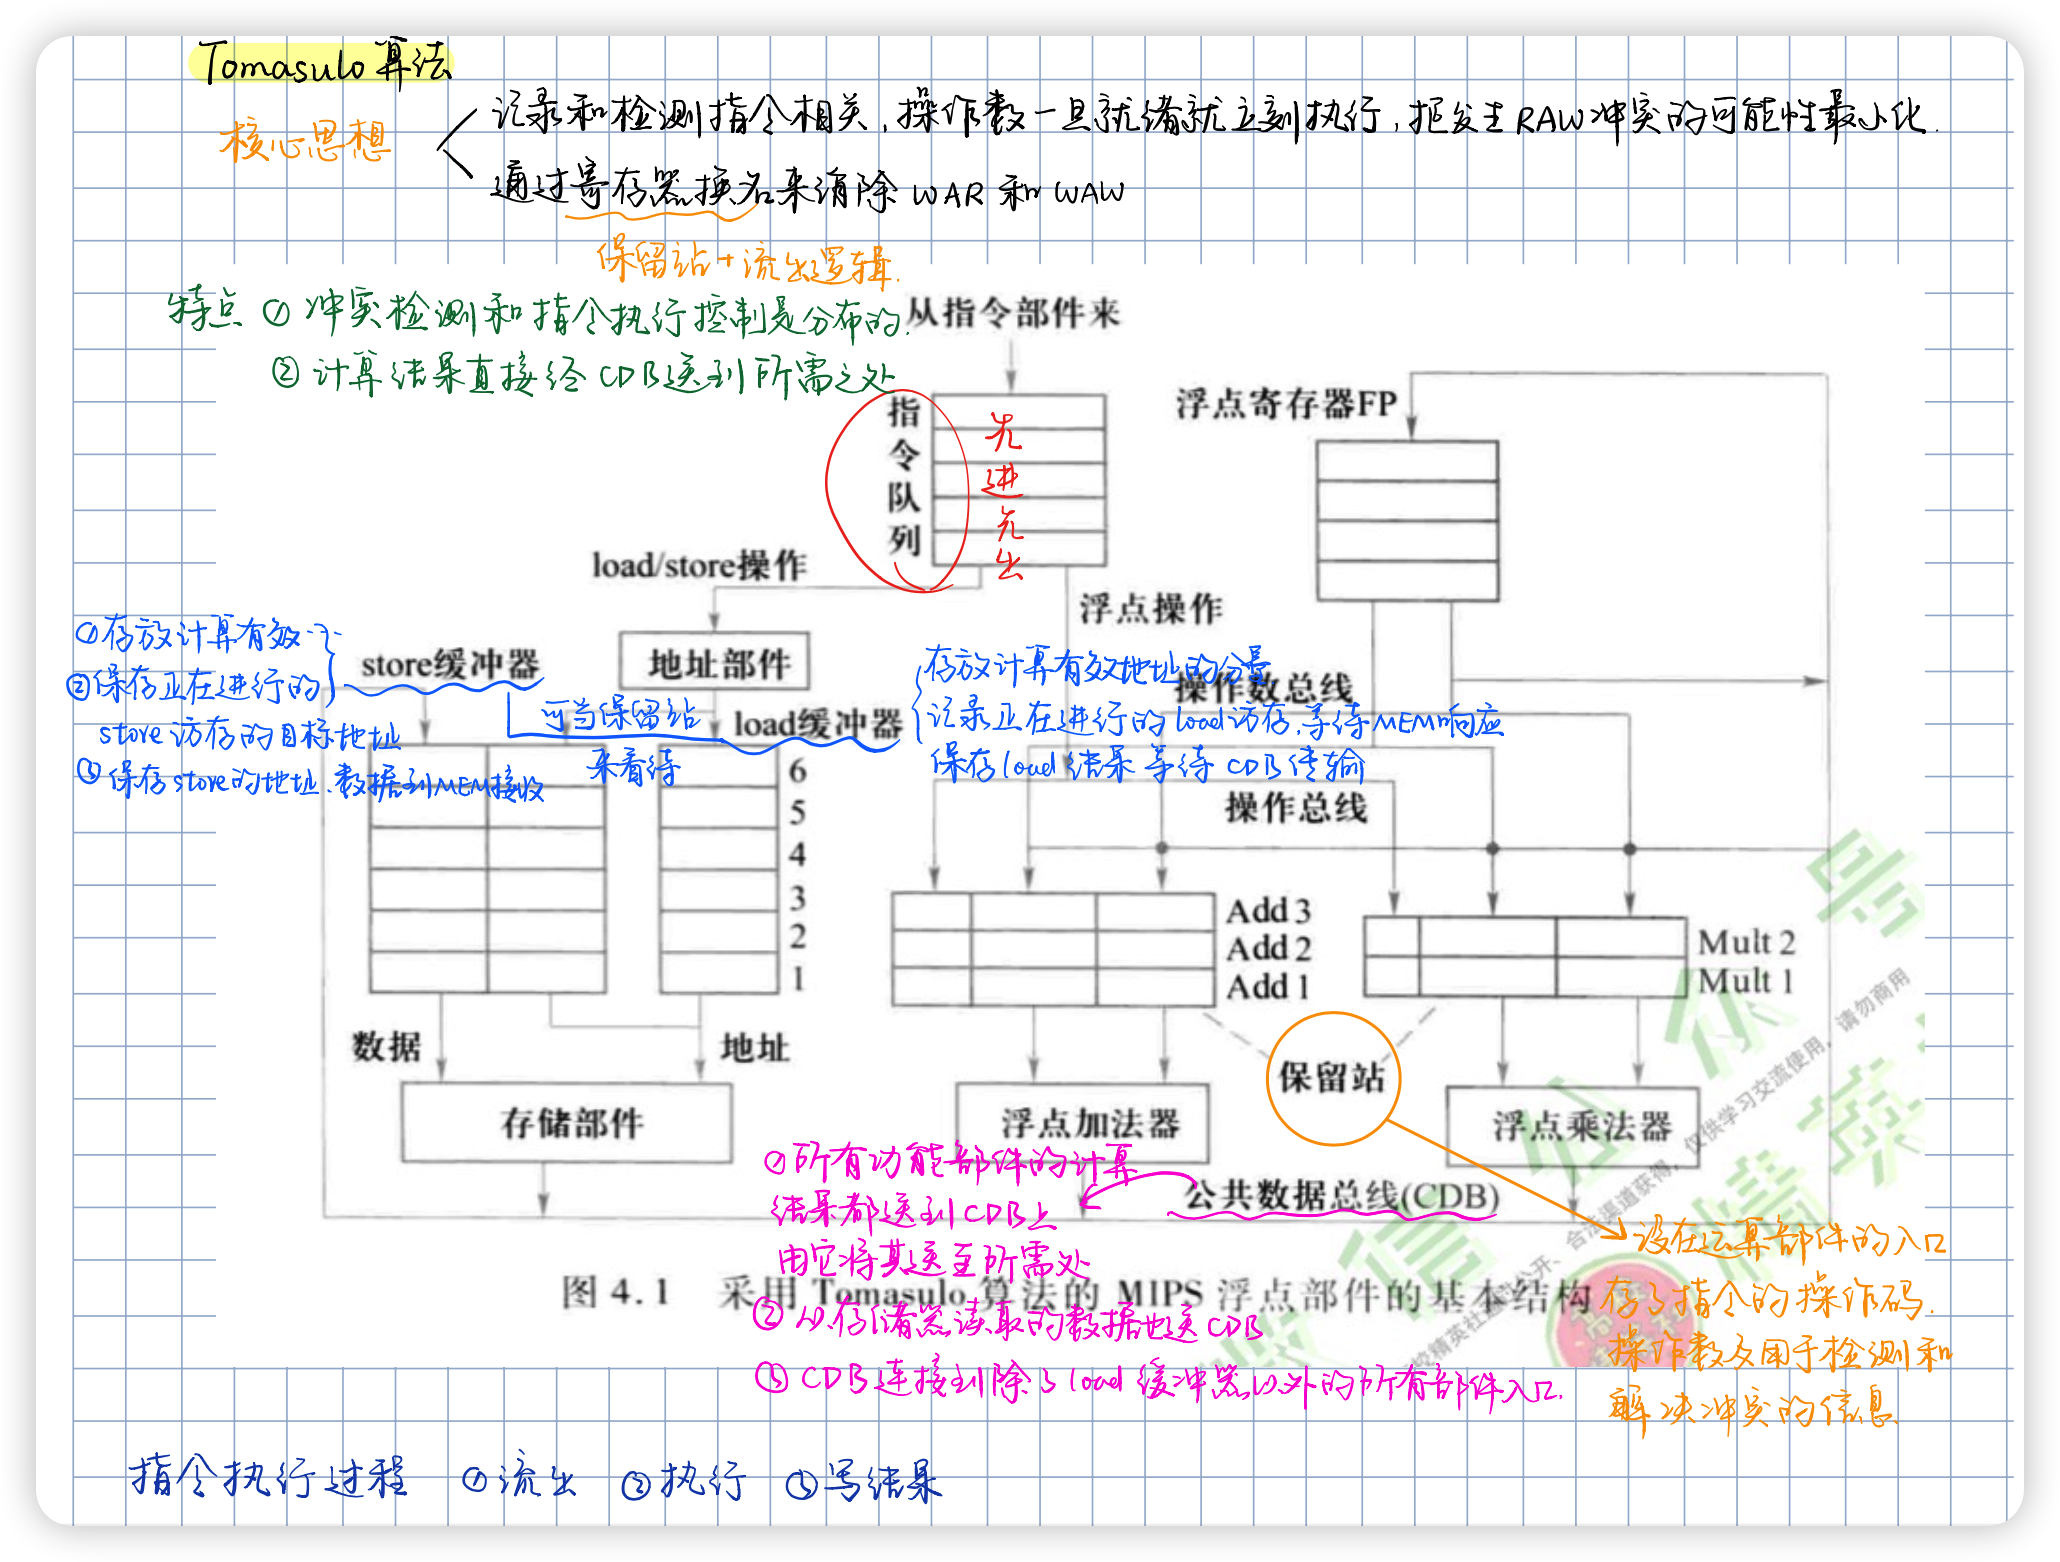 Tomasulo 算法
核心思想
记录和检测指令相关,操作数一旦就绪就立刻执行,把发生RAW冲突的可能性最小化.
通过寄存器换名来消除 WAR 和 WAW
保留站+流出逻辑.
特点 ① 冲突检测和指令执行控制是分布的.
② 计算结果直接经 CDB送到所需之处
从指令部件来
指令队列
先进先出
浮点寄存器FP
load/store操作
浮点操作
地址部件
①存放计算有效…
②保存正在进行的
store 访存的目标地址
③保存store的地址、数据到MEM接收
store缓冲器
可当保留站
来看待
load缓冲器
存放计算有效地址的分量
记录正在进行的load访存,等待MEM响应
保存load结果 等待 CDB传输
操作数总线
操作总线
6
5
4
3
2
1
Add 3
Add 2
Add 1
Mult 2
Mult 1
数据
地址
保留站
存储部件
浮点加法器
浮点乘法器
公共数据总线(CDB)
①所有功能部件的计算
结果都送到CDB上
由它将其送至所需处
② 从存储器读取的数据也送CDB
③ CDB连接到除了load缓冲器以外的所有部件入口.
设在运算部件的入口
存了指令的操作码.
操作数及用于检测和
解决冲突的信息
图 4.1 采用 Tomasulo 算法的 MIPS 浮点部件的基本结构
指令执行过程 ①流出 ②执行 ③写结果